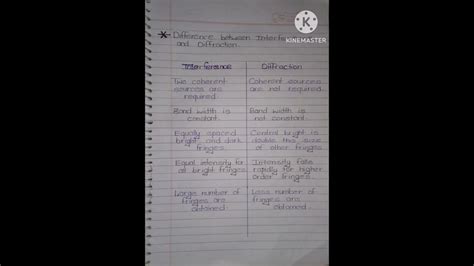 KINEMASTER
* Difference between Interfe
and Diffraction.
Interference Diffraction
Two coherent Coherent sources
sources are are not required.
required.
Band width is Band width is
constant. not constant.
Equally spaced Central bright is
bright and dark double the size
fringes. of other fringes.
Equal intensity for Intensity falls
all bright fringes rapidly for higher
order fringes.
Large number of Less number of
fringes are fringes are
obtained. obtained.